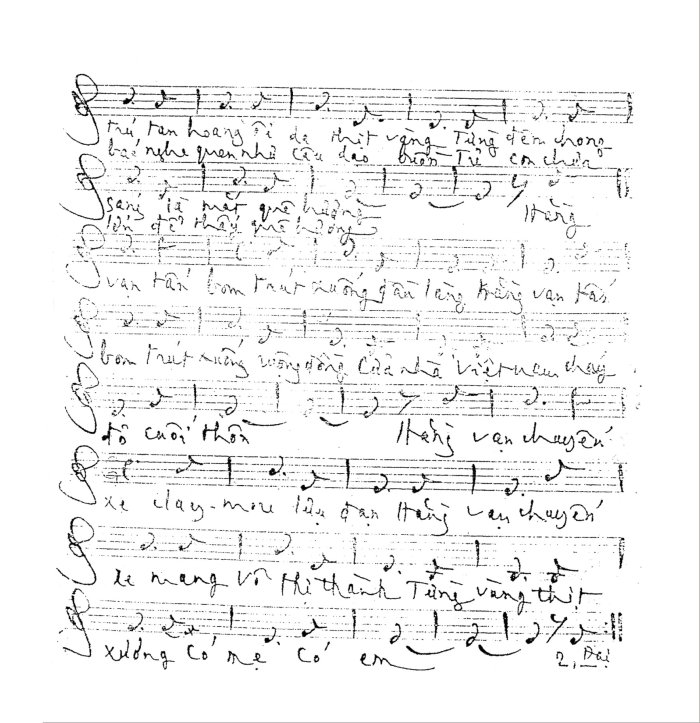 trẻ tan hoang ôi da thịt vàng Từng đêm chong
bác nghe quen như câu dạo buồn Trẻ con chưa
sáng là mắt quê hương Hàng
lớn để thấy quê hương
vạn tấn bom trút xuống đầu làng Hàng vạn tấn
bom trút xuống ruộng đồng Cửa nhà Việt nam cháy
đỏ cuối thôn Hàng vạn chuyến
xe clay-more lựu đạn Hàng vạn chuyến
xe mang vô thị thành Từng vùng thịt
xương có mẹ có em 2. Đại